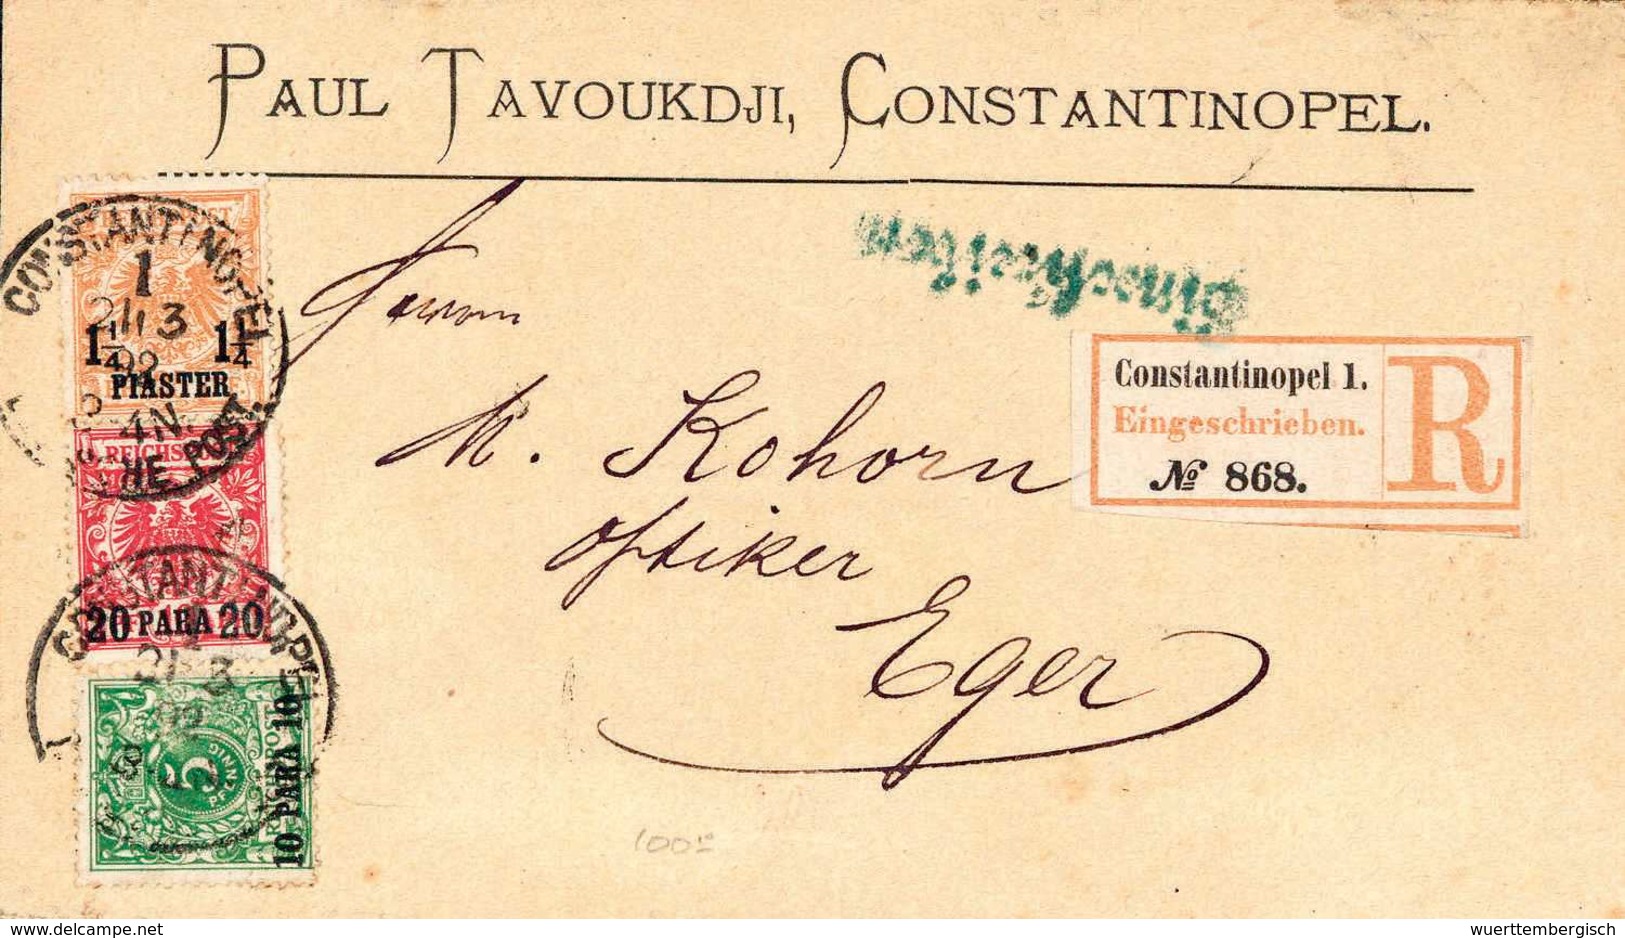 PAUL TAVOUKDJI, CONSTANTINOPEL.
CONSTANTINOPEL
1
21/3
92
4-N.
HE POST.
1 1/4 1 1/4
PIASTER
REICHSPOST
20 PARA 20
CONSTANTINOPEL
1
21/3
92
5
PFENNIG
REICHSPOST
10 PARA 10
Einschreiben
Constantinopel 1.
Eingeschrieben.
№ 868.
R
Herrn
M. Kohorn
Optiker
Eger
100
wuerttembergisch